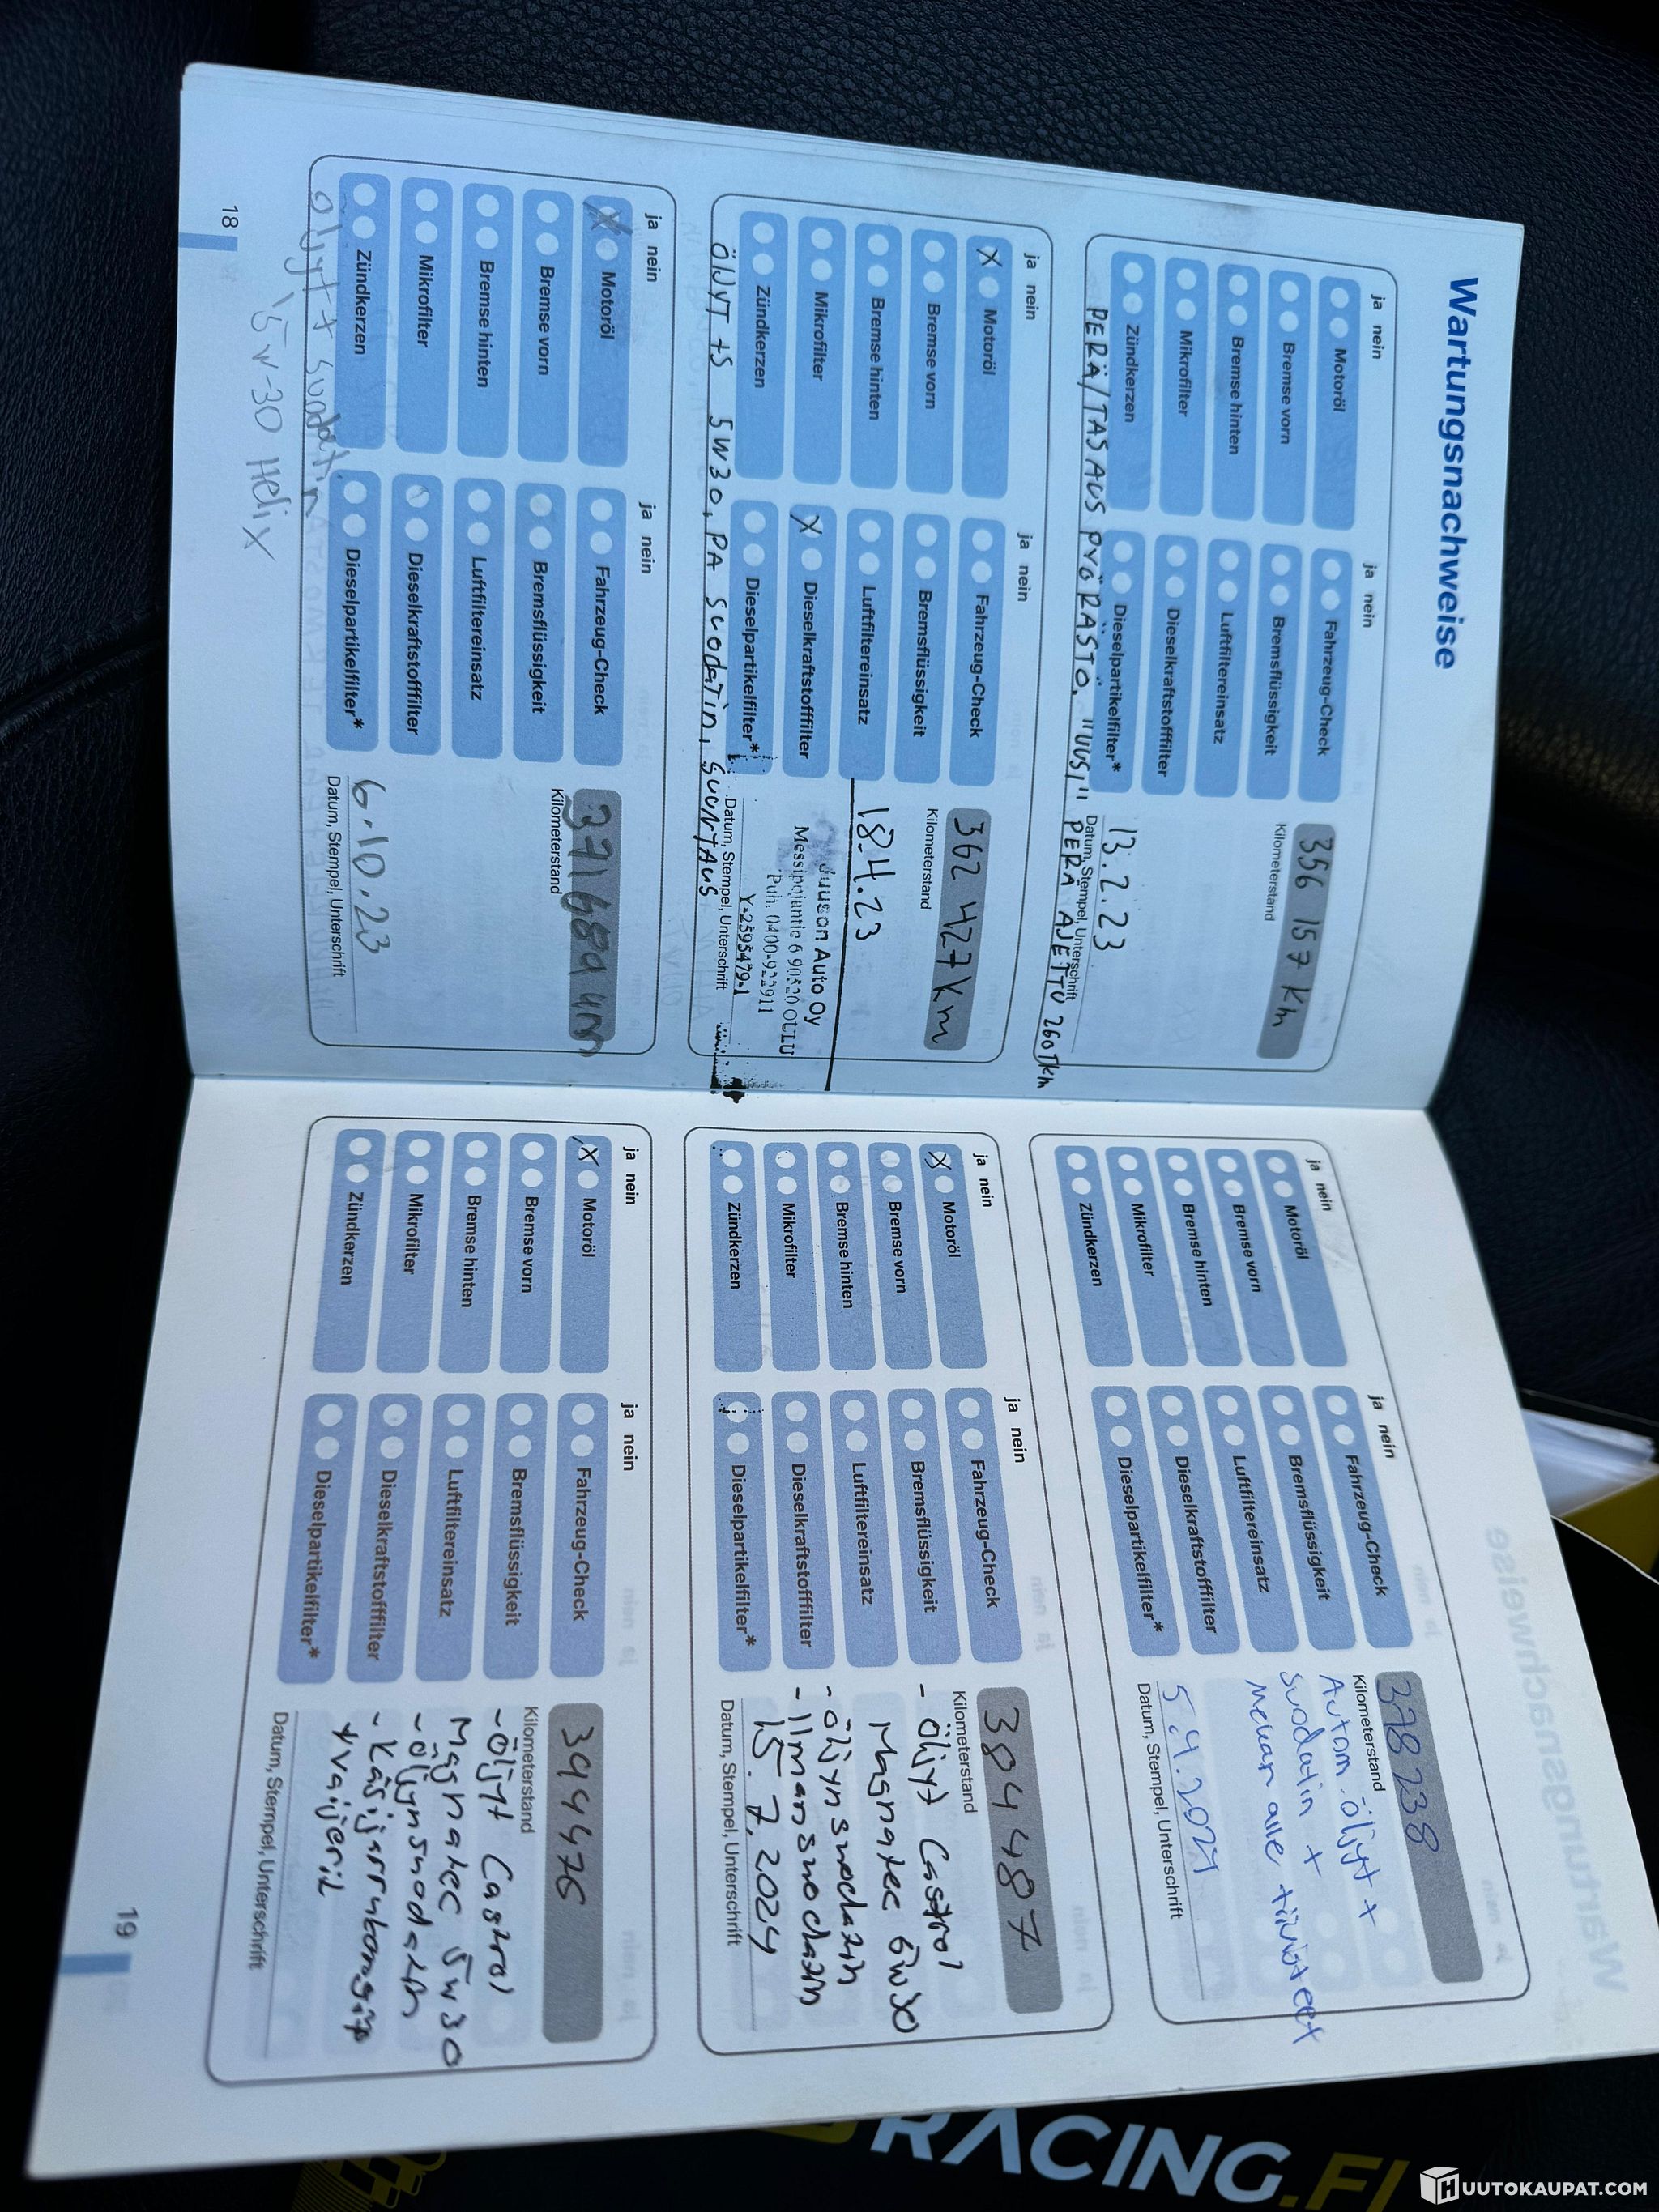 Wartungsnachweise
ja nein
Motoröl
Bremse vorn
Bremse hinten
Mikrofilter
Zündkerzen
ja nein
Fahrzeug-Check
Bremsflüssigkeit
Luftfiltereinsatz
Dieselkraftstofffilter
Dieselpartikelfilter*
356 157 Km
Kilometerstand
13.2.23
Datum, Stempel, Unterschrift
PERÄ/TASAUSPYÖRÄSTÖ. "UUSI" PERÄ AJETTU 260TKm
ja nein
X Motoröl
Bremse vorn
Bremse hinten
Mikrofilter
Zündkerzen
ja nein
Fahrzeug-Check
Bremsflüssigkeit
Luftfiltereinsatz
X Dieselkraftstofffilter
Dieselpartikelfilter*
362 427 Km
Kilometerstand
18.4.23
Juuson Auto Oy
Messipojantie 6 90520 OULU
Puh. 0400-922911
Y-2595479-1
Datum, Stempel, Unterschrift
ÖLJYT +S 5W30, PA SUODATIN, SUUNTAUS
ja nein
X Motoröl
Bremse vorn
Bremse hinten
Mikrofilter
Zündkerzen
ja nein
Fahrzeug-Check
Bremsflüssigkeit
Luftfiltereinsatz
Dieselkraftstofffilter
Dieselpartikelfilter*
Kilometerstand
6.10.23
Datum, Stempel, Unterschrift
öljyt + suodatin
5w-30 Helix
18
ja nein
Motoröl
Bremse vorn
Bremse hinten
Mikrofilter
Zündkerzen
ja nein
Fahrzeug-Check
Bremsflüssigkeit
Luftfiltereinsatz
Dieselkraftstofffilter
Dieselpartikelfilter*
378 238
Kilometerstand
Autom.öljyt +
suodatin +
mekan alle tiivisteet
5.4.2024
Datum, Stempel, Unterschrift
ja nein
X Motoröl
Bremse vorn
Bremse hinten
Mikrofilter
Zündkerzen
ja nein
Fahrzeug-Check
Bremsflüssigkeit
Luftfiltereinsatz
Dieselkraftstofffilter
Dieselpartikelfilter*
384487
Kilometerstand
- Öljyt Castrol
Magnatec 5w30
- öljynsuodatin
- ilmansuodatin
15.7.2024
Datum, Stempel, Unterschrift
ja nein
X Motoröl
Bremse vorn
Bremse hinten
Mikrofilter
Zündkerzen
ja nein
Fahrzeug-Check
Bremsflüssigkeit
Luftfiltereinsatz
Dieselkraftstofffilter
Dieselpartikelfilter*
394476
Kilometerstand
- Öljyt Castrol
Magnatec 5w30
- öljynsuodatin
- Käsijarrukengät
+ vaijerit
Datum, Stempel, Unterschrift
19
RACING.FI
HUUTOKAUPAT.COM